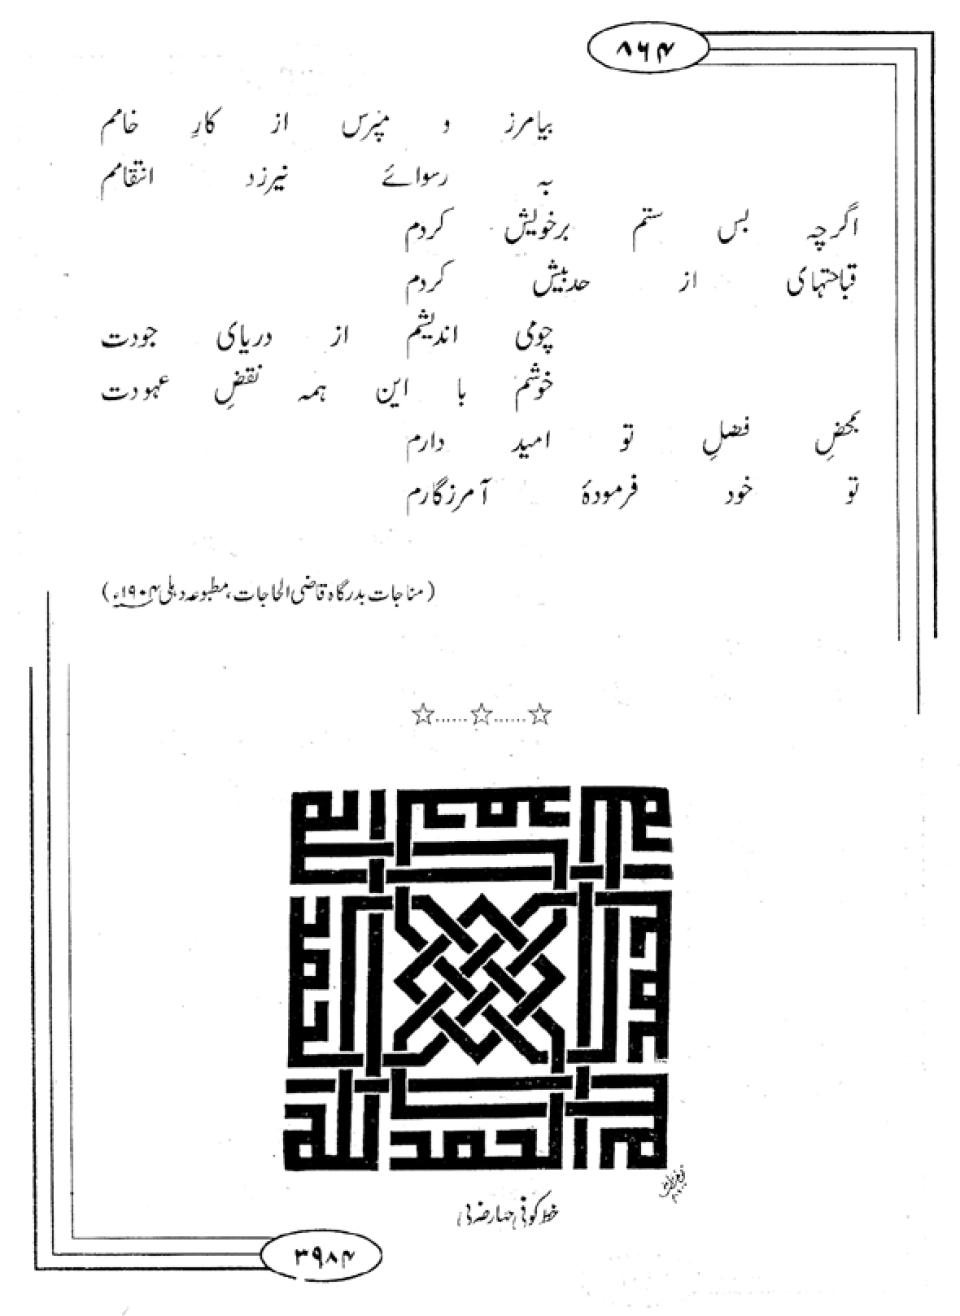 ۸۶۴
بیامرز و مپرس از کارِ خامم
بہ رسوائے نیرزد انتقامم
اگرچہ بس ستم برخویش کردم
قباحتہای از حد بیش کردم
چومی اندیشم از دریای جودت
خوشم با این ہمہ نقضِ عہودت
بمحضِ فضلِ تو امید دارم
تو خود فرمودۂ آمرزگارم
(مناجات بدرگاہ قاضی الحاجات، مطبوعہ دہلی ۱۹۰۴ء)
☆......☆......☆
الحمد للہ
خط کوفی چہار ضربی
۳۹۸۴